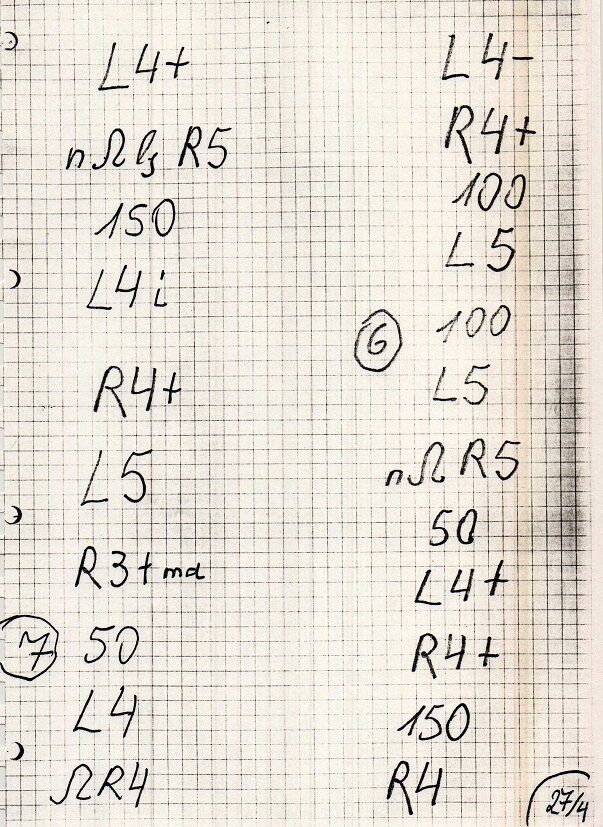 L4+
nΩ lz R5
150
L4i
R4+
L5
R3+ md
7 50
L4
ΩR4
L4-
R4+
100
L5
6 100
L5
nΩ R5
50
L4+
R4+
150
R4
27/4